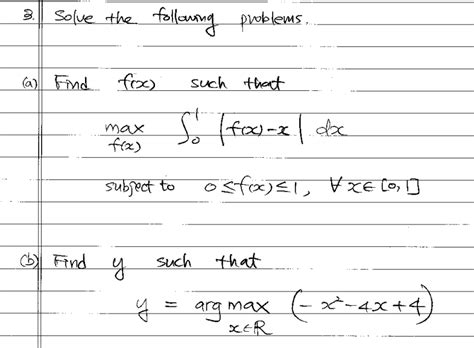 3. Solve the following problems.
(a) Find f(x) such that
max f(x) ∫₀¹ |f(x)-x| dx
subject to 0≤f(x)≤1, ∀x∈[0,1]
(b) Find y such that
y = arg max x∈ℝ (-x²-4x+4)